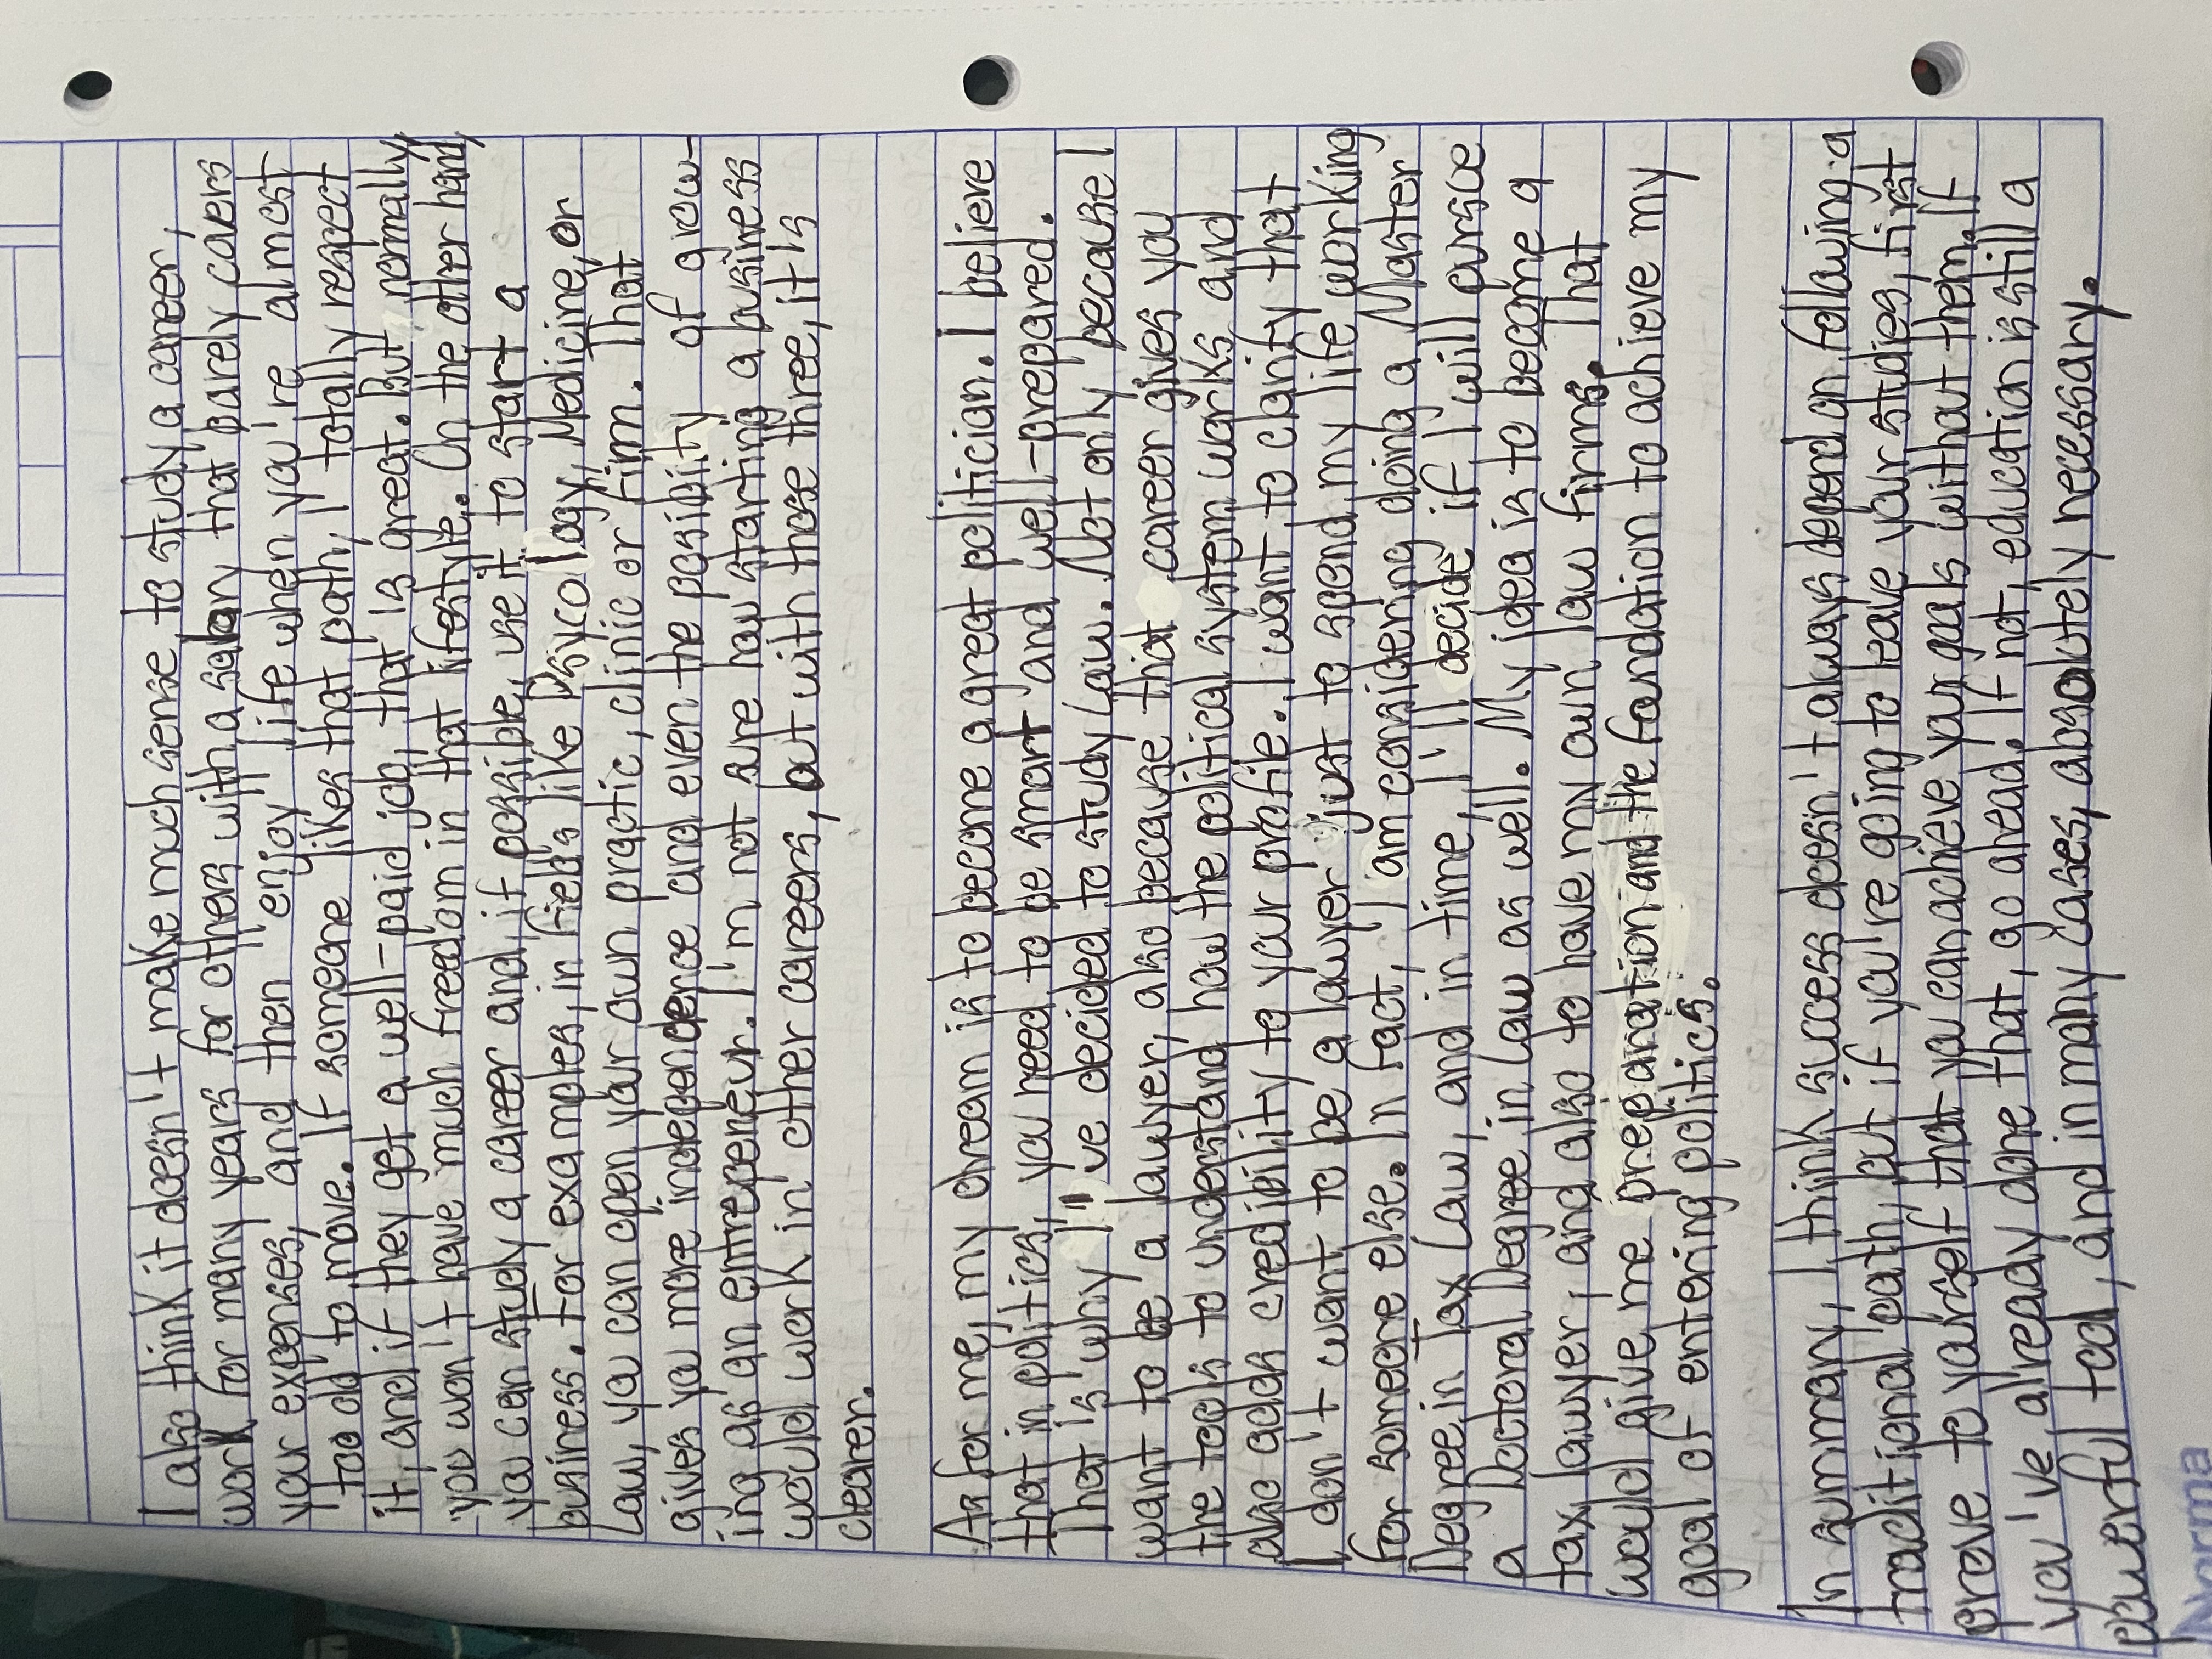 I also think it doesn't make much sense to study a career,
work for many years for others with a salary that barely covers
your expenses, and then "enjoy" life when you're almost
too old to move. If someone likes that path, I totally respect
it, and if they get a well-paid job, that is great. But normally
you won't have much freedom in that lifestyle. On the other hand,
you can study a career and, if possible, use it to start a
business. For examples, in fields like Psycology, Medicine, or
Law, you can open your own practic, clinic or firm. That
gives you more independence and even the posibility of grow-
ing as an entrepeneur. I'm not sure how starting a business
would work in other careers, but with those three, it is
clearer.
As for me, my dream is to become a great politician. I believe
that in politics, you need to be smart and well-prepared.
That is why I've decided to study Law. Not only because I
want to be a lawyer, also because that career gives you
the tools to understand how the political system works and
also adds credibility to your profile. I want to clarify that
I don't want to be a lawyer just to spend my life working
for someone else. In fact, I am considering doing a Master
Degree in Tax Law, and in time, I'll decide if I will pursue
a Doctoral Degree in Law as well. My idea is to become a
tax lawyer, and also to have my own law firms. That
would give me preparation and the fondation to achieve my
goal of entering politics.
In summary, I think success doesn't always depend on following a
traditional path, but if you're going to leave your studies, first
prove to yourself that you can achieve your goals without them. If
you've already done that, go ahead. If not, education is still a
powerful tool, and in many cases, absolutely necessary.
Norma